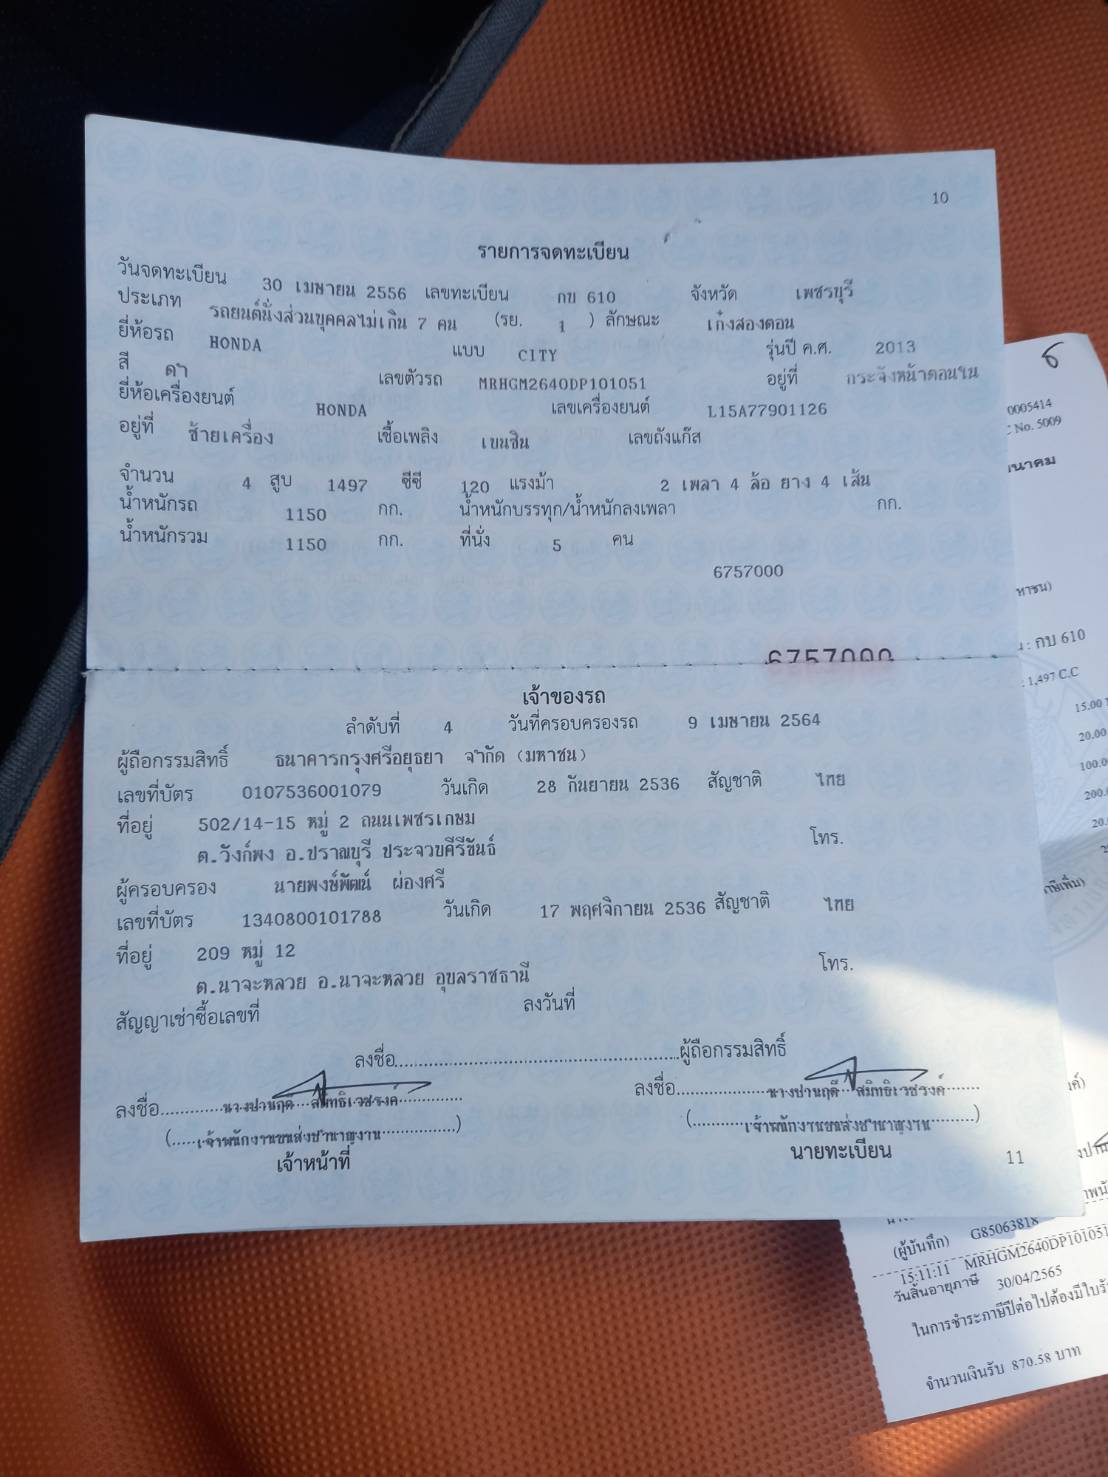 10
รายการจดทะเบียน
วันจดทะเบียน 30 เมษายน 2556 เลขทะเบียน กบ 610 จังหวัด เพชรบุรี
ประเภท รถยนต์นั่งส่วนบุคคลไม่เกิน 7 คน (รย. 1 ) ลักษณะ เก๋งสองตอน
ยี่ห้อรถ HONDA แบบ CITY รุ่นปี ค.ศ. 2013
สี ดำ เลขตัวรถ MRHGM2640DP101051 อยู่ที่ กระจังหน้าตอนใน
ยี่ห้อเครื่องยนต์ HONDA เลขเครื่องยนต์ L15A77901126
อยู่ที่ ซ้ายเครื่อง เชื้อเพลิง เบนซิน เลขถังแก๊ส
จำนวน 4 สูบ 1497 ซีซี 120 แรงม้า 2 เพลา 4 ล้อ ยาง 4 เส้น
น้ำหนักรถ 1150 กก. น้ำหนักบรรทุก/น้ำหนักลงเพลา กก.
น้ำหนักรวม 1150 กก. ที่นั่ง 5 คน
6757000
6757000
เจ้าของรถ
ลำดับที่ 4 วันที่ครอบครองรถ 9 เมษายน 2564
ผู้ถือกรรมสิทธิ์ ธนาคารกรุงศรีอยุธยา จำกัด (มหาชน)
เลขที่บัตร 0107536001079 วันเกิด 28 กันยายน 2536 สัญชาติ ไทย
ที่อยู่ 502/14-15 หมู่ 2 ถนนเพชรเกษม
ต.วังก์พง อ.ปราณบุรี ประจวบคีรีขันธ์ โทร.
ผู้ครอบครอง นายพงษ์พัฒน์ ผ่องศรี
เลขที่บัตร 1340800101788 วันเกิด 17 พฤศจิกายน 2536 สัญชาติ ไทย
ที่อยู่ 209 หมู่ 12
ต.นาจะหลวย อ.นาจะหลวย อุบลราชธานี โทร.
สัญญาเช่าซื้อเลขที่ ลงวันที่
ลงชื่อ ผู้ถือกรรมสิทธิ์
ลงชื่อ นางปานฤดี สมิทธิเวชรงค์ ลงชื่อ นางปานฤดี สมิทธิเวชรงค์
(เจ้าพนักงานขนส่งชำนาญงาน) (เจ้าพนักงานขนส่งชำนาญงาน)
เจ้าหน้าที่ นายทะเบียน
11
0005414
No. 5009
หาชน)
: กบ 610
: 1,497 C.C
15.00
20.00
100.0
200.
20.
(ผู้บันทึก) G85063818
15:11:11 MRHGM2640DP101051
วันสิ้นอายุภาษี 30/04/2565
ในการชำระภาษีปีต่อไปต้องมีใบรั
จำนวนเงินรับ 870.58 บาท